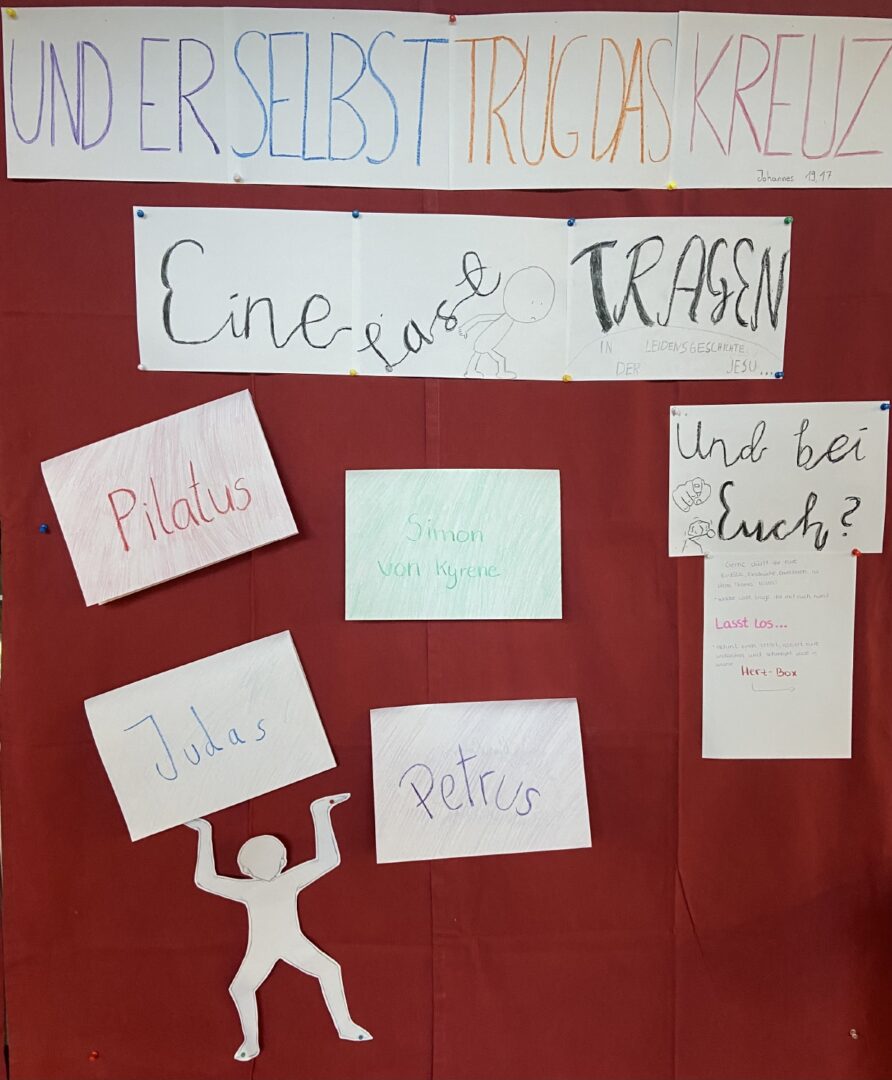 UND ER SELBST TRUG DAS KREUZ
Johannes 19,17
Eine Last TRAGEN
IN LEIDENSGESCHICHTE
DER JESU...
Pilatus
Simon
von Kyrene
Und bei
Euch?
Gerne dürft ihr eure
Lasst Los...
Herz-Box
Judas
Petrus